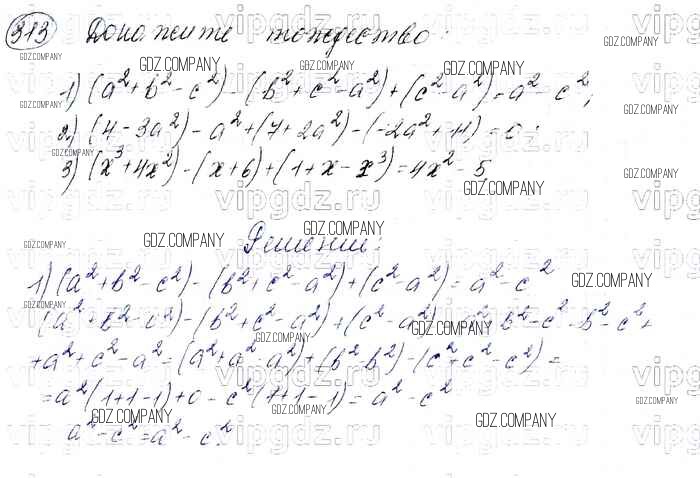 313 Докажите тождество:
1) (a² + b² - c²) - (b² + c² - a²) + (c² - a²) = a² - c²;
2) (4 - 3a²) - a² + (7 + 2a²) - (-2a² + 11) = 0;
3) (x³ + 4x²) - (x + 6) + (1 + x - x³) = 4x² - 5
Решение:
1) (a² + b² - c²) - (b² + c² - a²) + (c² - a²) = a² - c²
(a² + b² - c²) - (b² + c² - a²) + (c² - a²) = a² + b² - c² - b² - c² +
+ a² + c² - a² = (a² + a² - a²) + (b² - b²) - (c² + c² - c²) =
= a² (1 + 1 - 1) + 0 - c² (1 + 1 - 1) = a² - c²
a² - c² = a² - c².
GDZ.COMPANY
vipgdz.ru